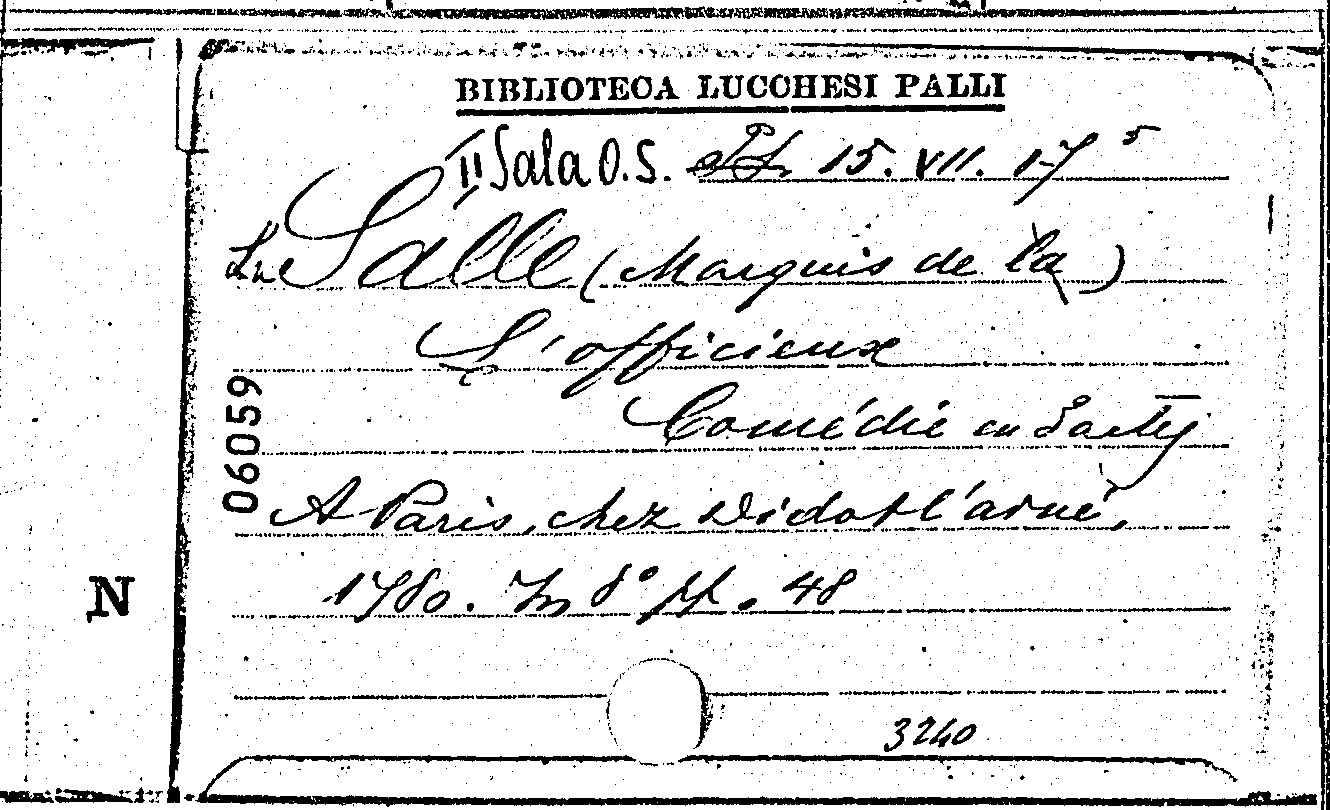 BIBLIOTECA LUCCHESI PALLI
II Sala O.S. 15. VII. 17 5
La Salle (Marquis de la)
L'officieux
Comédie en 3 actes
A Paris, chez Didot l'ainé,
1780. In 8° pp. 48
06059
N
3240